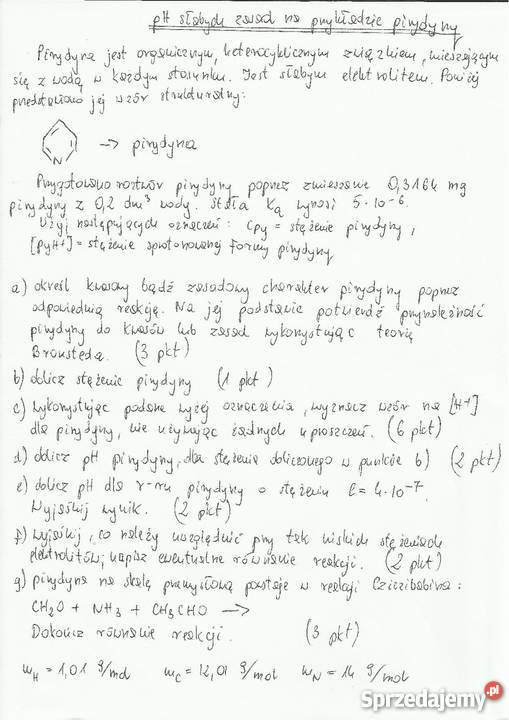 pH słabych zasad na przykładzie pirydyny
Pirydyna jest organicznym, heterocyklicznym związkiem, mieszającym
się z wodą w każdym stosunku. Jest słabym elektrolitem. Poniżej
przedstawiono jej wzór strukturalny:
N → pirydyna
Przygotowano roztwór pirydyny poprzez zmieszanie 0,3164 mg
pirydyny z 0,2 dm³ wody. Stała Ka wynosi 5·10⁻⁶.
Użyj następujących oznaczeń: cpy = stężenie pirydyny,
[pyH⁺] = stężenie sprotonowanej formy pirydyny
a) określ kwasowy bądź zasadowy charakter pirydyny poprzez
odpowiednią reakcję. Na jej podstawie potwierdź przynależność
pirydyny do kwasów lub zasad wykorzystując teorię
Bronsteda. (3 pkt)
b) oblicz stężenie pirydyny (1 pkt)
c) wykorzystując podane wyżej oznaczenia, wyznacz wzór na [H⁺]
dla pirydyny, nie używając żadnych uproszczeń. (6 pkt)
d) oblicz pH pirydyny, dla stężenia obliczonego w punkcie b) (2 pkt)
e) oblicz pH dla r-ru pirydyny o stężeniu c=4·10⁻⁷.
Wyjaśnij wynik. (2 pkt)
f) wyjaśnij, co należy uwzględnić przy tak niskich stężeniach
elektrolitów; napisz ewentualne równanie reakcji. (2 pkt)
g) pirydyna na skalę przemysłową powstaje w reakcji Cziczibabina:
CH₂O + NH₃ + CH₃CHO →
Dokończ równanie reakcji. (3 pkt)
mH = 1,01 g/mol mC = 12,01 g/mol mN = 14 g/mol
Sprzedajemy.pl